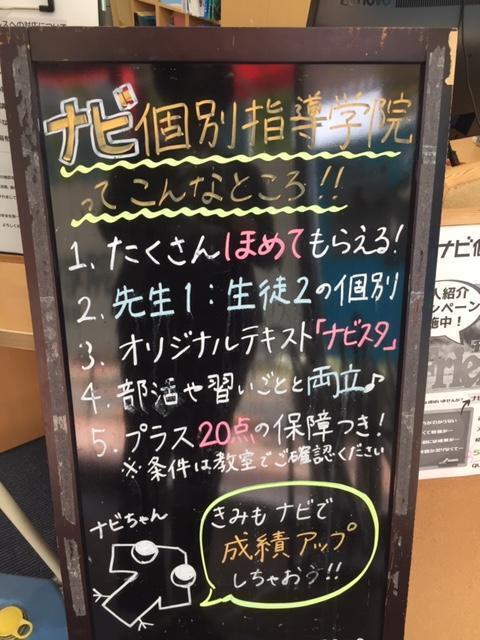 ナビ個別指導学院
ってこんなところ!!
1. たくさんほめてもらえる!
2. 先生1:生徒2の個別
3. オリジナルテキスト「ナビスタ」
4. 部活や習いごとと両立♪
5. プラス20点の保障つき!
※条件は教室でご確認ください
ナビちゃん
きみもナビで
成績アップ
しちゃおう!!
ナビ個
人紹介
ンペーン
施中!